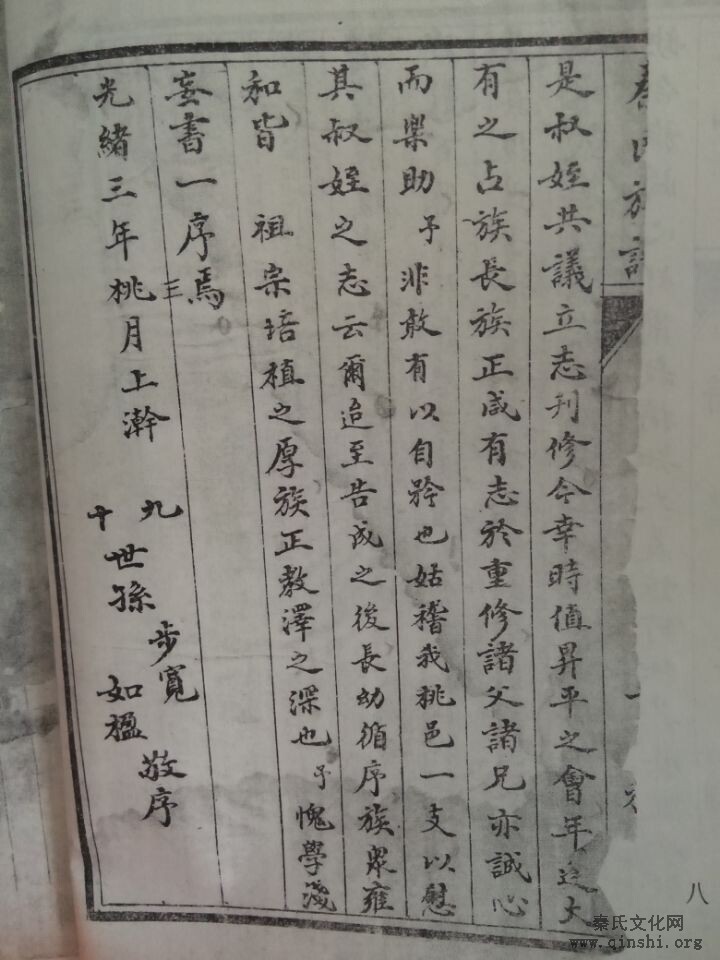 秦氏族譜
八
是叔姪共議立志刊修今幸時值昇平之會年逢大
有之占族長族正咸有志於重修諸父諸兄亦誠心
而樂助予非敢有以自矜也姑稽我桃邑一支以慰
其叔姪之志云爾迨至告成之後長幼循序族衆雍
和皆 祖宗培植之厚族正教澤之深也予愧學淺
妄書一序焉
光緒三年桃三月上澣 九十世孫 步寬 如楹 敬序
秦氏文化网
www.qinshi.org